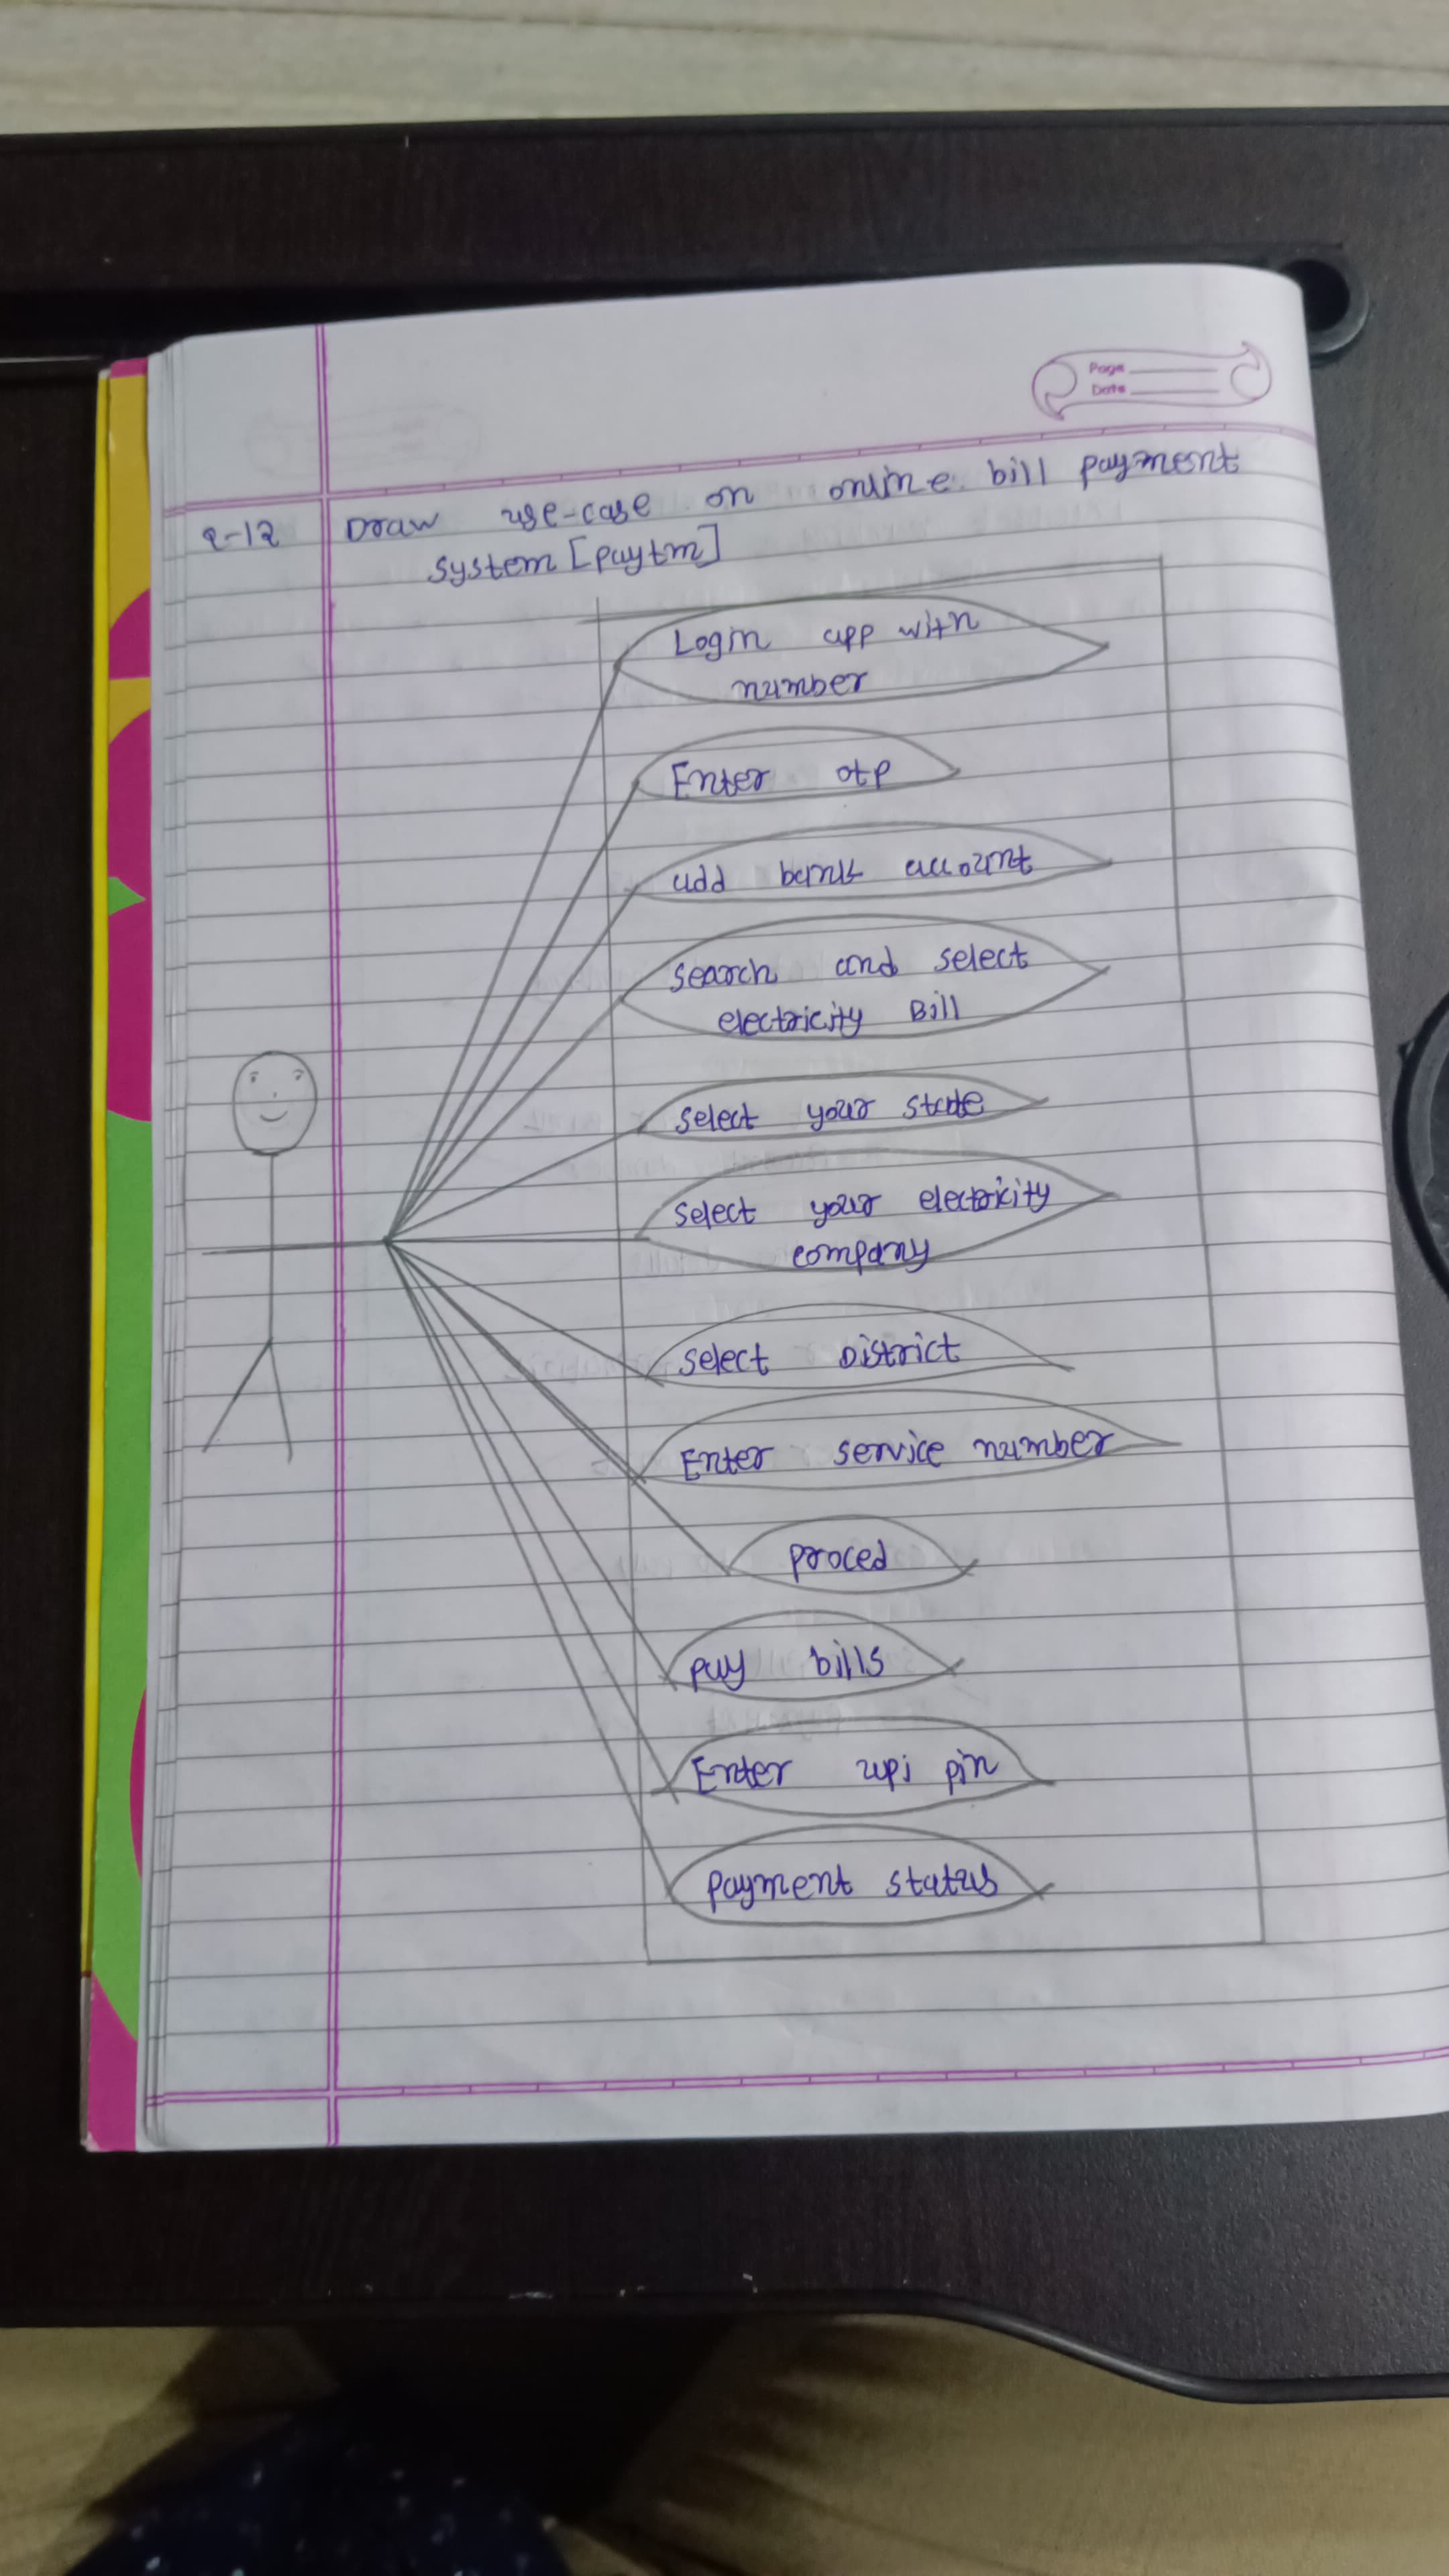 Page
Date
Q-12 Draw use-case on online bill payment
system [paytm]
Login app with
number
Enter otp
add bank account
search and select
electricity Bill
select your state
select your electricity
company
select District
Enter service number
proced
pay bills
Enter upi pin
payment status